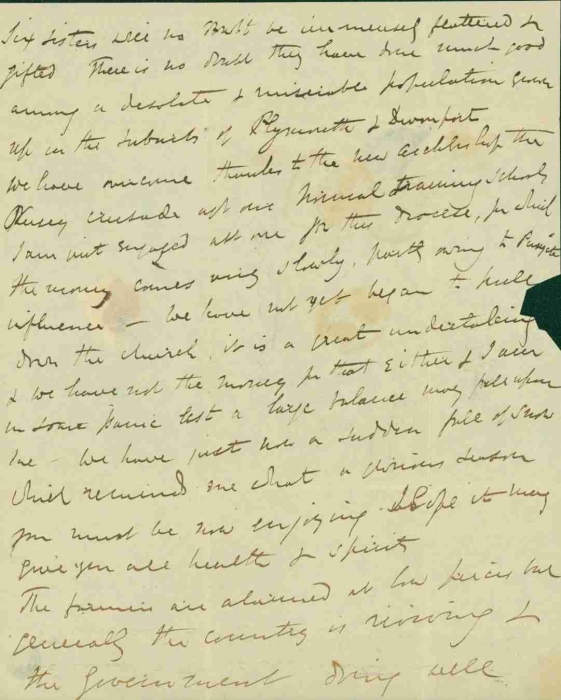 Six sisters will no doubt be immensely flattered &
gifted There is no doubt they have done much good
among a desolate & miserable population grown
up in the suburbs of Plymouth & Devonport
We have overcome thanks to the new archbishop the
Pusey crusade agt our Normal training schools
I am just engaged abt one for this Diocese, for which
the money comes very slowly, partly owing to Puseyite
influence - We have not yet began to pull
down the church, it is a great undertaking
& we have not the money for that either & I am
in some panic lest a large balance may fall upon
me - We have just now a sudden fall of snow
which reminds me what a glorious season
you must be now enjoying. I hope it may
give you all health & spirits
The farmers are alarmed at low prices but
generally the country is reviving &
the Government doing well